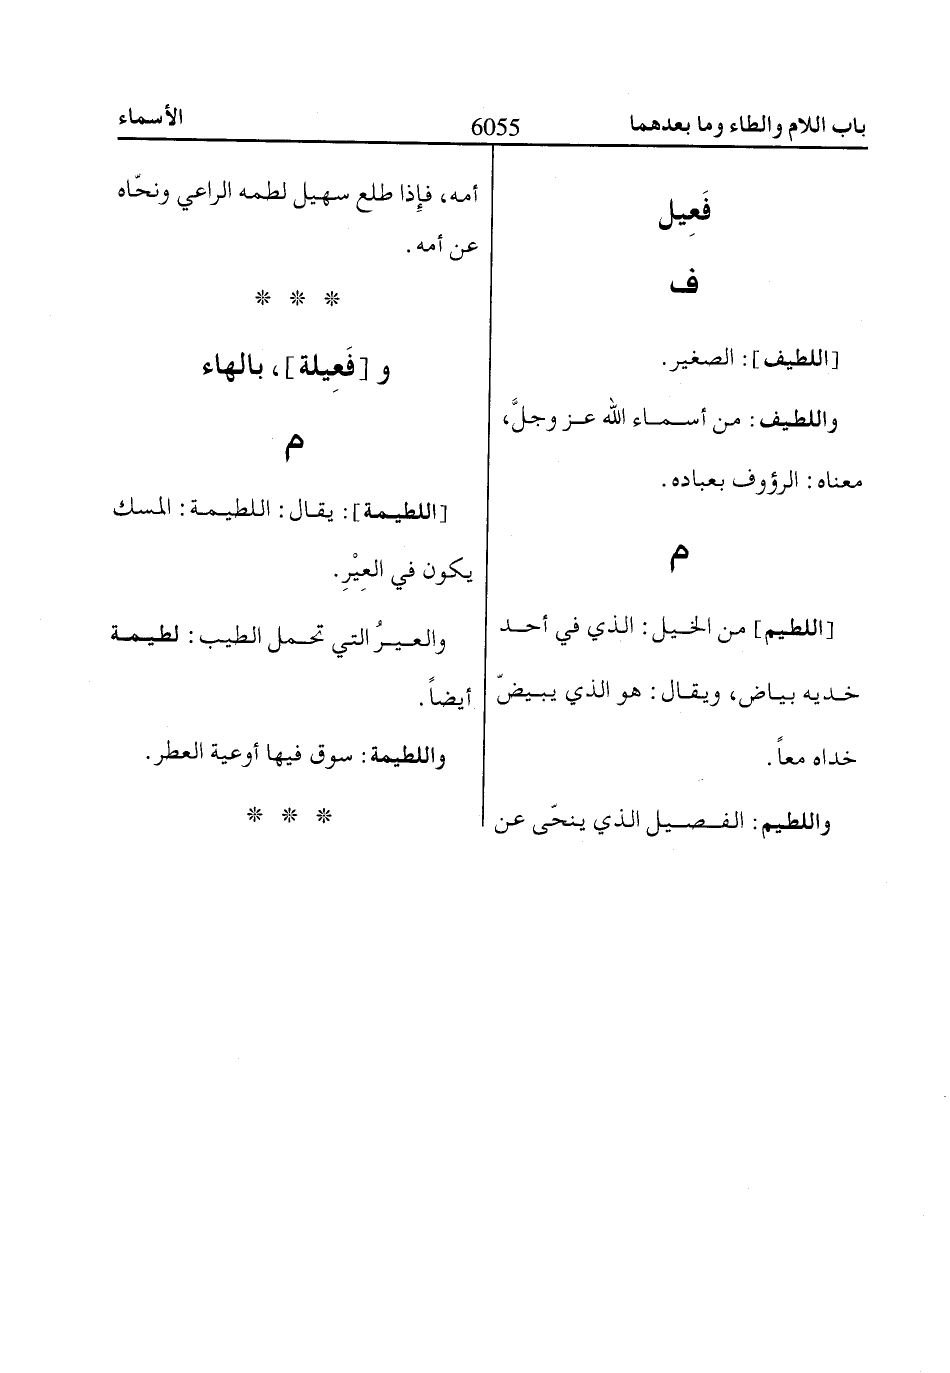 باب اللام والطاء وما بعدهما
6055
الأسماء
فَعِيل
ف
[اللطيف]: الصغير.
واللطيف: من أسماء الله عز وجلَّ،
معناه: الرؤوف بعباده.
م
[اللطيم] من الخيل: الذي في أحد
خديه بياض، ويقال: هو الذي يبيضّ
خداه معاً.
واللطيم: الفصيل الذي ينحّى عن
أمه، فإِذا طلع سهيل لطمه الراعي ونحّاه
عن أمه.
* * *
و [فَعِيلة]، بالهاء
م
[اللطيمة]: يقال: اللطيمة: المسك
يكون في العِيْرِ.
والعيرُ التي تحمل الطيب: لطيمة
أيضاً.
واللطيمة: سوق فيها أوعية العطر.
* * *